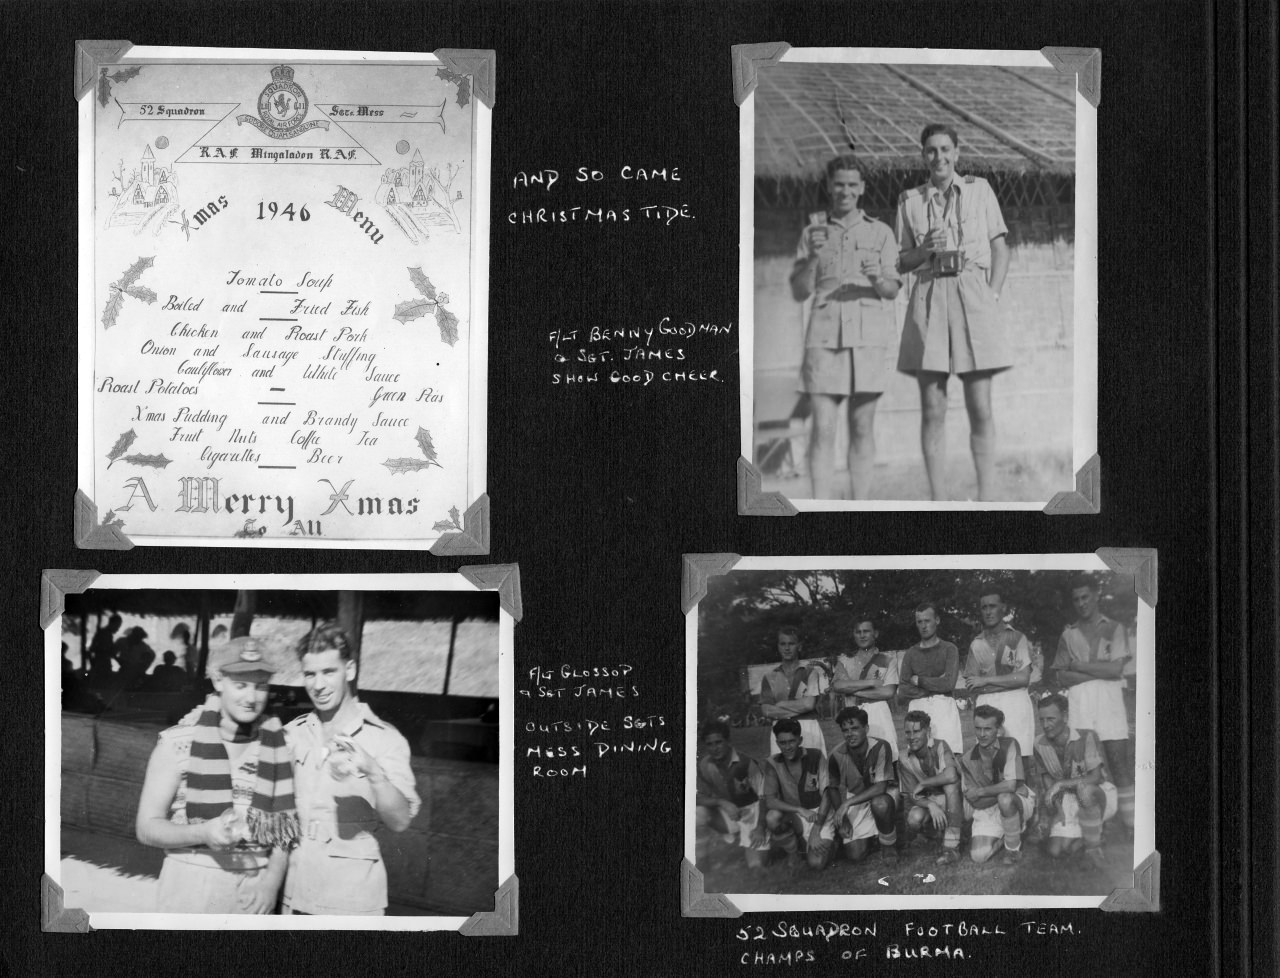 52 Squadron
Sgts Mess
R.A.F. Mingaladon R.A.F.
Xmas 1946 Menu
Tomato Soup
Boiled and Fried Fish
Chicken and Roast Pork
Onion and Sausage Stuffing
Cauliflower and White Sauce
Roast Potatoes Green Peas
X'mas Pudding and Brandy Sauce
Fruit Nuts Coffee Tea
Cigarettes Beer
A Merry Xmas
To All
AND SO CAME
CHRISTMAS TIDE.
F/LT BENNY GOODMAN
& SGT. JAMES
SHOW GOOD CHEER.
F/LT GLOSSOP
& SGT JAMES
OUTSIDE SGTS
MESS DINING
ROOM
52 SQUADRON FOOTBALL TEAM.
CHAMPS OF BURMA.